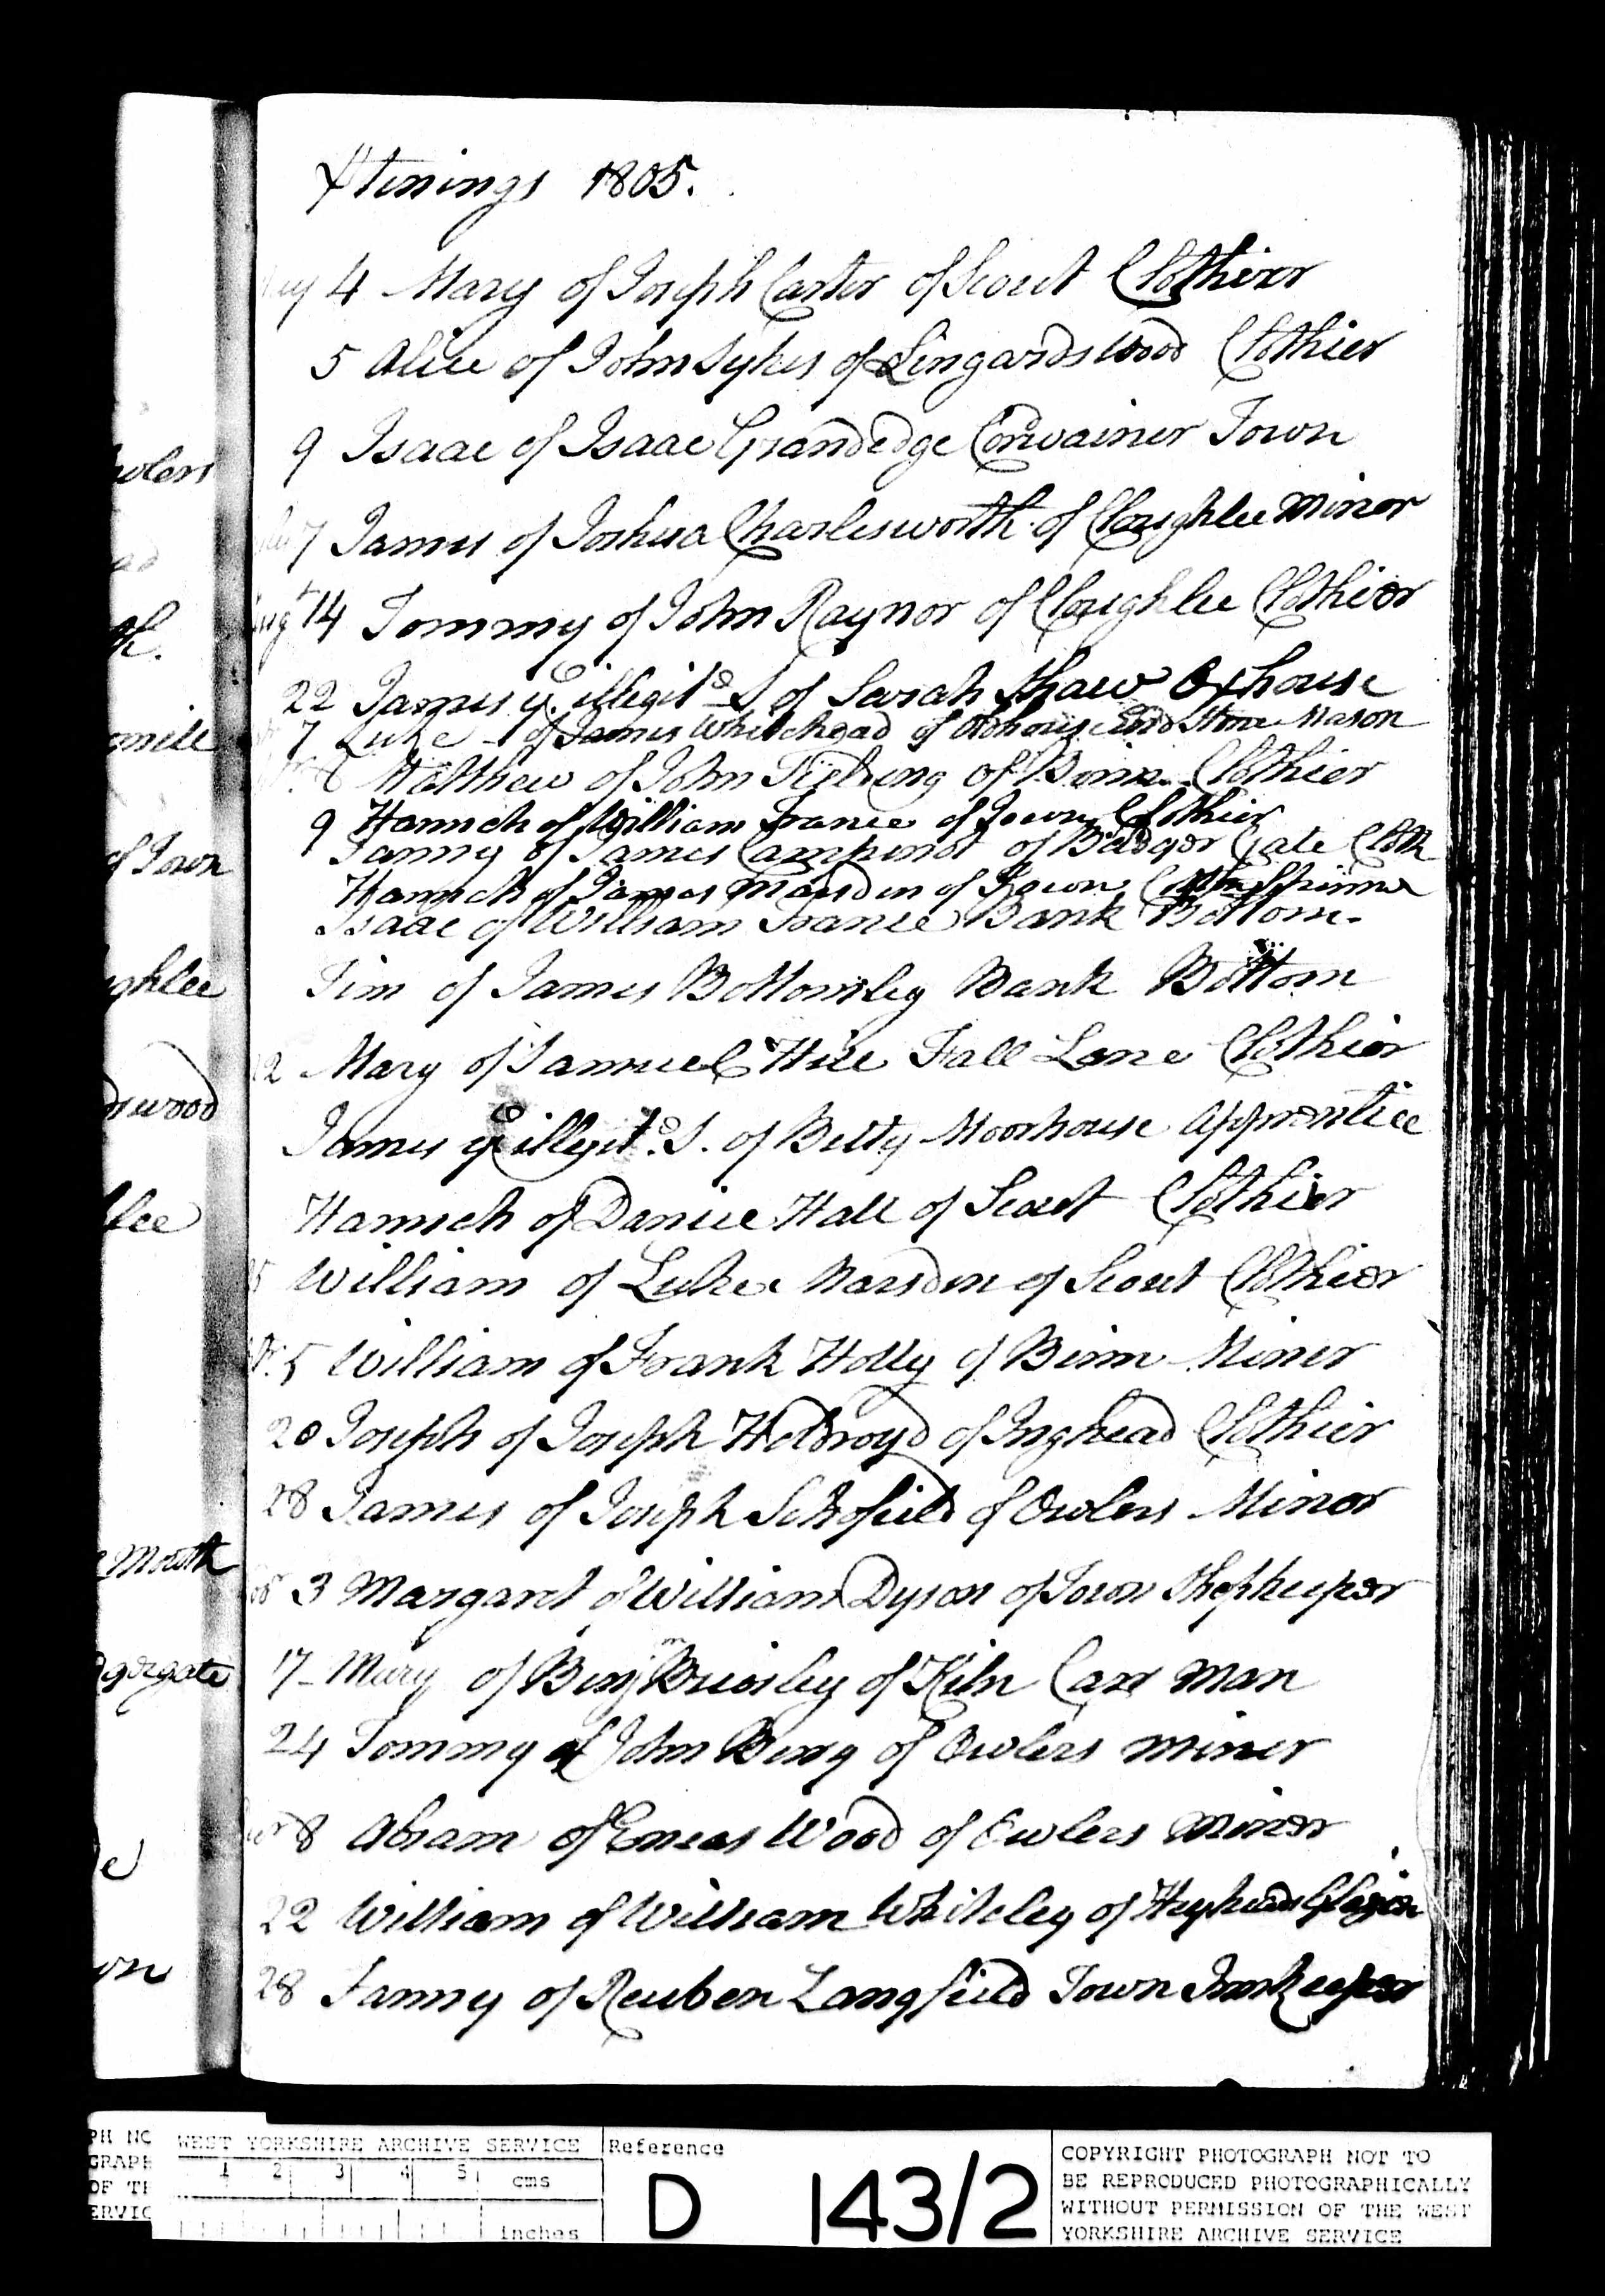 Xtnings 1805.
4 Mary of Joseph Carter of Scout Clothier
5 Alice of John Sykes of Lingardswood Clothier
9 Isaac of Isaac Grandedge Cordwainer Town
7 James of Joshua Charlesworth of Cloughlee Miner
Augt 14 Tommy of John Raynor of Cloughlee Clothier
22 James ye illegite S of Sarah Shaw Oxhouse
7 Luke of James Whitehead of Woodhouse End Stone Mason
8 Matthew of John Fielding of Binn Clothier
9 Hannah of William France of Town Clothier
Fanny of James Campinot of Badger Gate Cloth
Hannah of James Marsden of Town Cotton Spinner
Isaac of William France Bank Bottom.
Tim of James Bottomley Bank Bottom
12 Mary of Samuel Hill Fall Lane Clothier
James ye illegite S. of Betty Moorhouse Apprentice
Hannah of Daniel Hall of Scout Clothier
15 William of Luke Marsden of Scout Clothier
5 William of Frank Holly of Binn Miner
20 Joseph of Joseph Holdroyd of Inghead Clothier
28 James of Joseph Schofield of Owlers Miner
3 Margaret of William Dyson of Town Shopkeeper
17 Mary of Benjn Brierley of Kiln Carr Man
24 Tommy of John Berry of Owlers Miner
8 Abram of Eneas Wood of Owlers Miner
22 William of William Whiteley of Heyhead
28 Fanny of Reuben Langfield Town Innkeeper
owlers
ad
th.
of Town
ghlee
dswood
lee
Mouth
dgergate
wn
PH NO
GRAPH
OF TH
ERVIC
WEST YORKSHIRE ARCHIVE SERVICE
1 2 3 4 5 cms
inches
Reference
D 143/2
COPYRIGHT PHOTOGRAPH NOT TO
BE REPRODUCED PHOTOGRAPHICALLY
WITHOUT PERMISSION OF THE WEST
YORKSHIRE ARCHIVE SERVICE